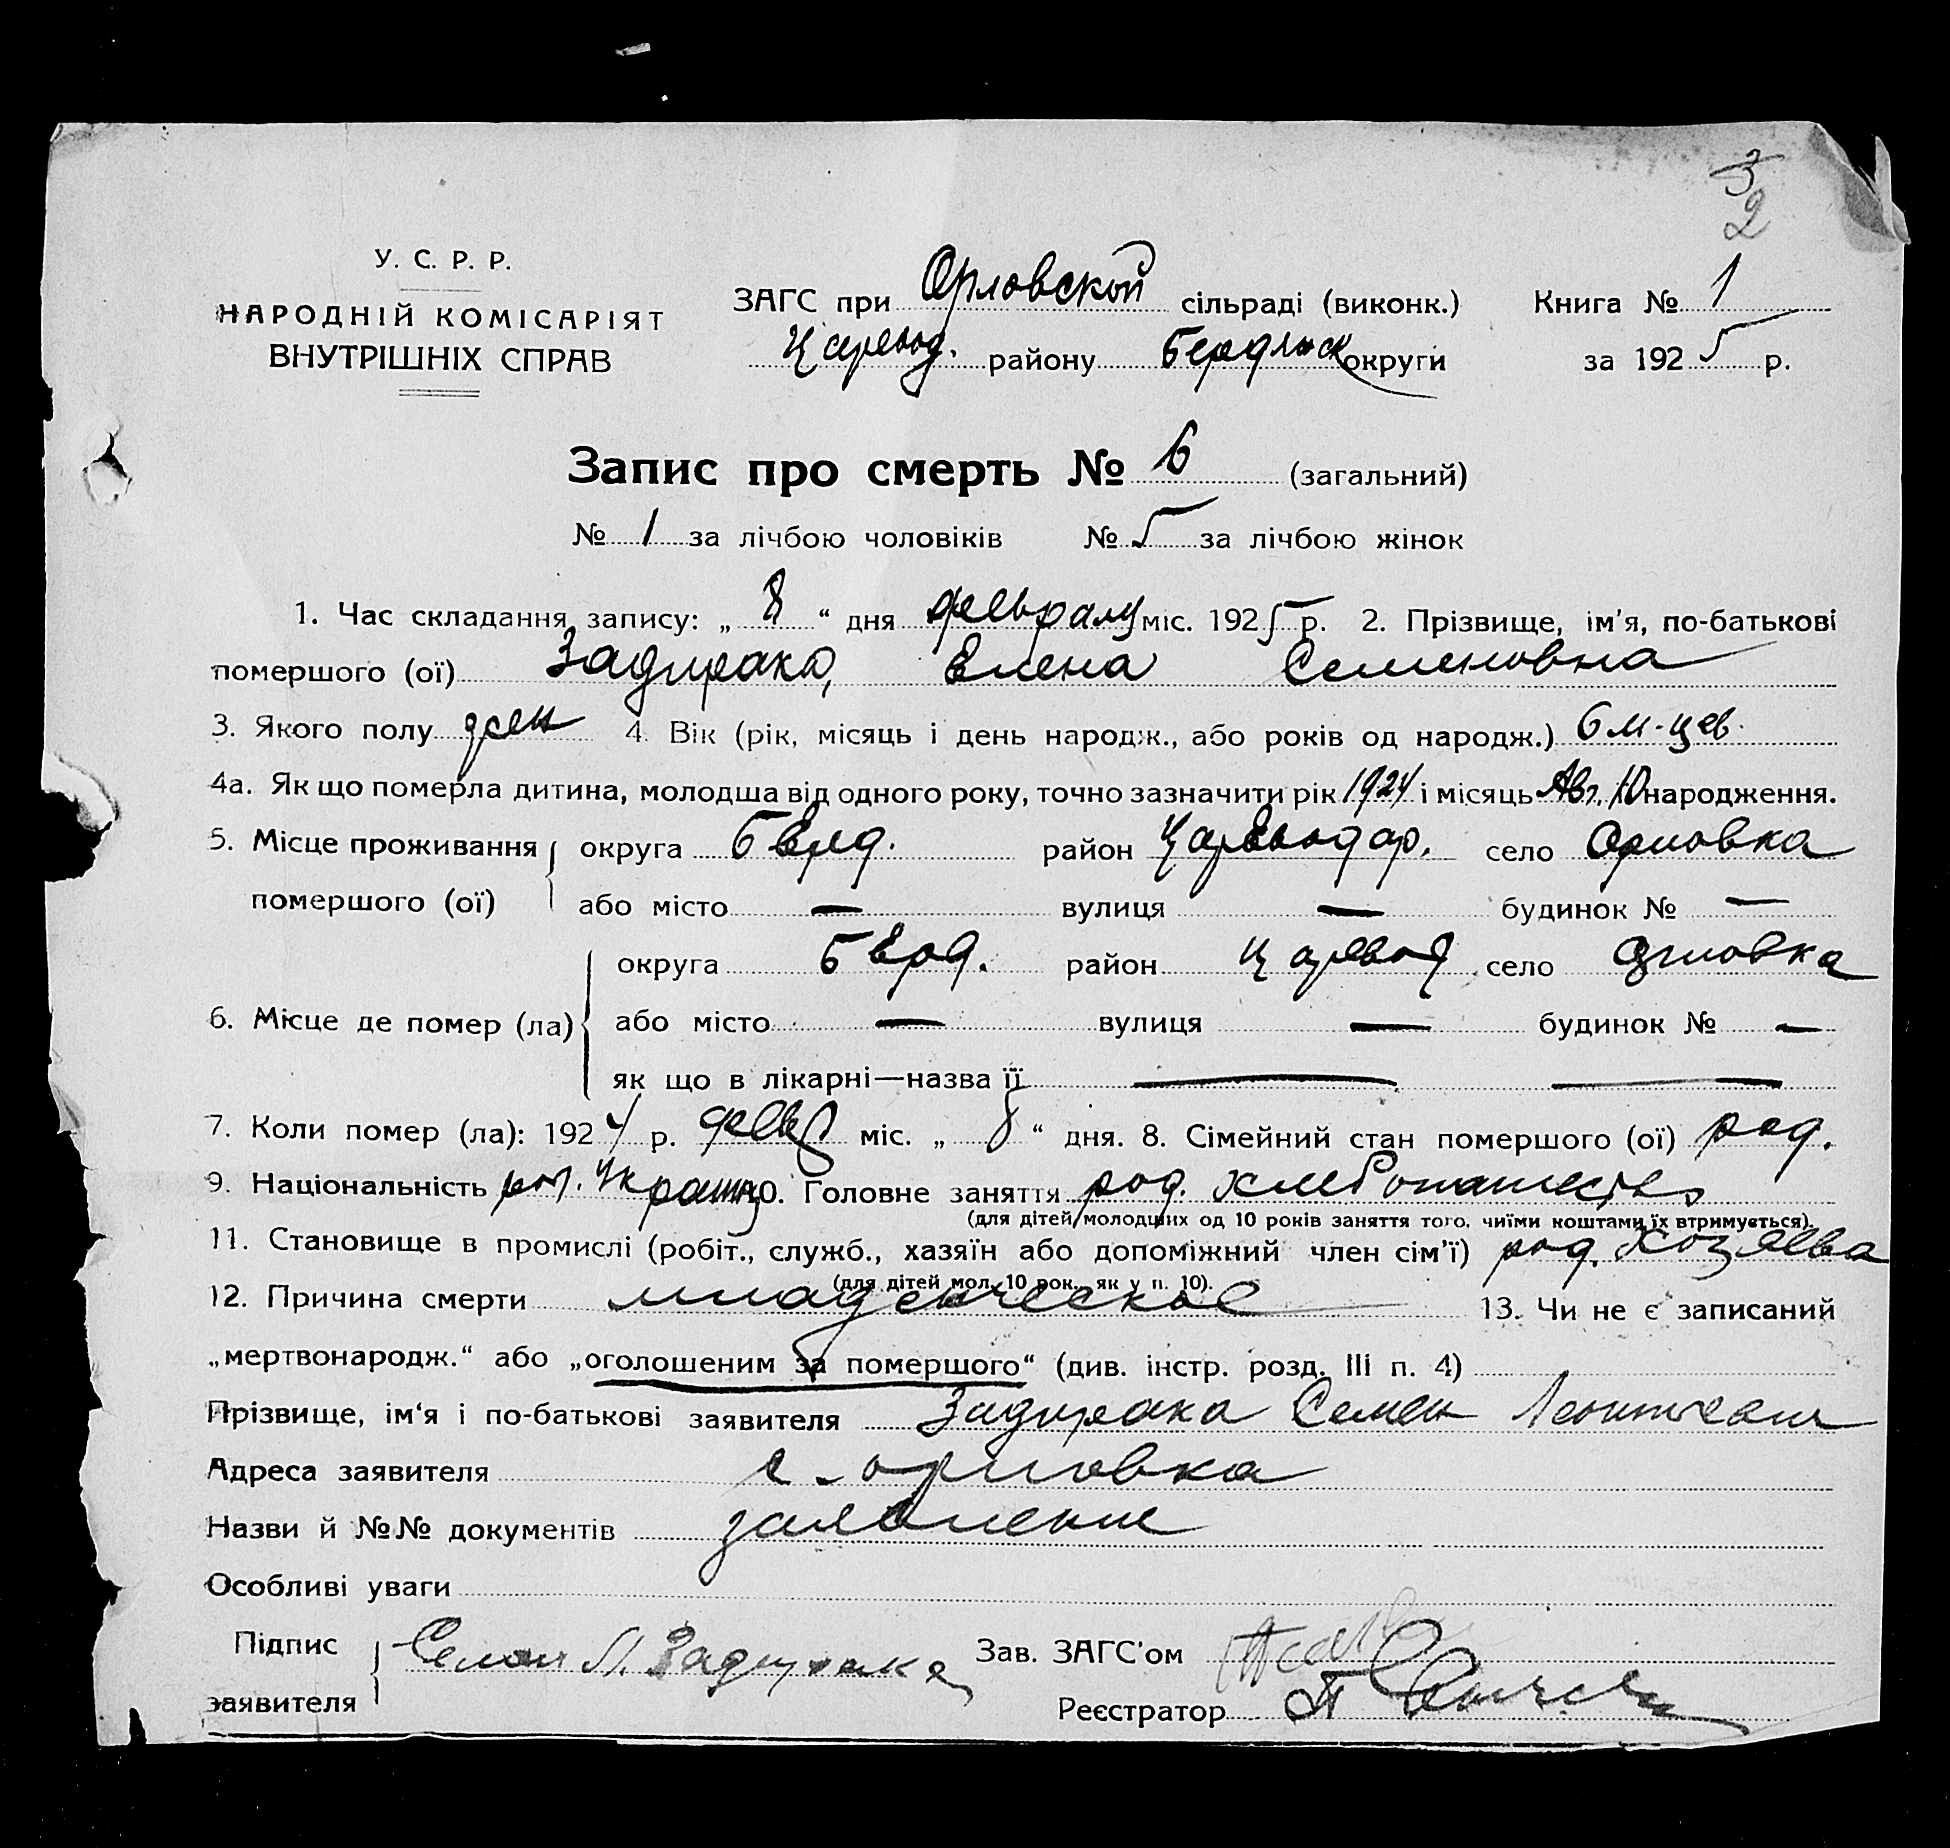 3
2
У. С. Р. Р.
НАРОДНІЙ КОМІСАРІЯТ
ВНУТРІШНІХ СПРАВ
ЗАГС при Орловской сільраді (виконк.) Книга № 1
Царевод. району Бердянск округи за 1925 р.
Запис про смерть № 6 (загальний)
№ 1 за лічбою чоловіків № 5 за лічбою жінок
1. Час складання запису: „ 8 “ дня февраля міс. 1925 р. 2. Прізвище, ім'я, по-батькові
помершого (ої) Задирака, Елена Семеновна
3. Якого полу жен 4. Вік (рік, місяць і день народж., або років од народж.) 6 м-цев.
4а. Як що померла дитина, молодша від одного року, точно зазначити рік 1924 і місяць Авг. 10 народження.
5. Місце проживання округа Берд. район Цареводар. село Орловка
помершого (ої) або місто — вулиця — будинок № —
округа Берд. район Царевод село Орловка
6. Місце де помер (ла) або місто — вулиця — будинок № —
як що в лікарні—назва її — —
7. Коли помер (ла): 1924 р. февр міс. „ 8 “ дня. 8. Сімейний стан помершого (ої) род.
9. Національність Украин 10. Головне заняття род. хлебопашество
(для дітей молодших од 10 років заняття того, чиїми коштами їх втримується).
11. Становище в промислі (робіт., служб., хазяїн або допоміжний член сім'ї) род. хозяева
(для дітей мол. 10 рок., як у п. 10).
12. Причина смерти младенческое 13. Чи не є записаний
„мертвонародж.“ або „оголошеним за помершого“ (див. інстр. розд. III п. 4)
Прізвище, ім‘я і по-батькові заявителя Задирака Семен Леонтьевич
Адреса заявителя с. Орловка
Назви й №№ документів заявление
Особливі уваги
Підпис заявителя Семен Л. Задирака
Зав. ЗАГС'ом
Реєстратор